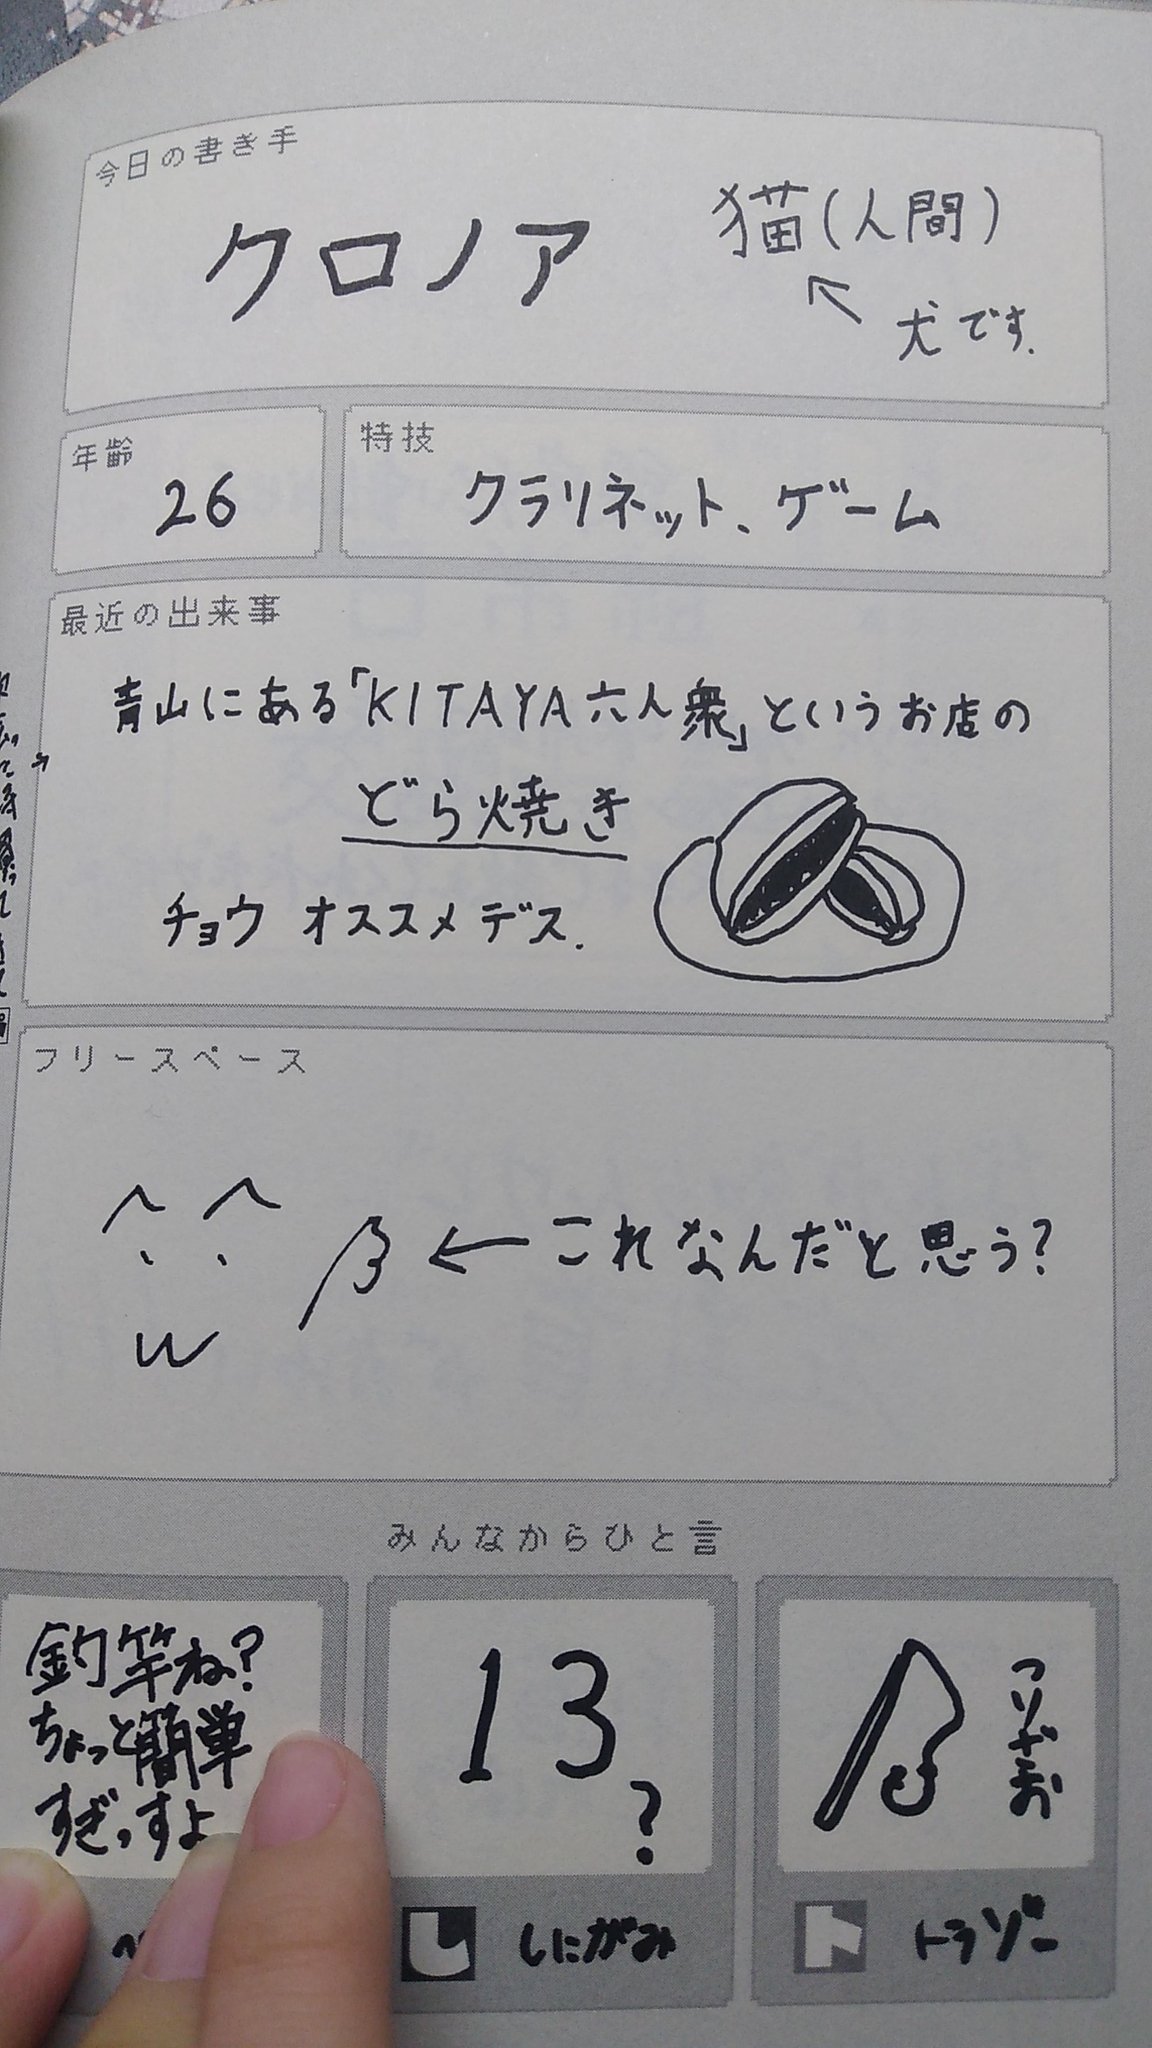 今日の書き手
クロノア
猫(人間)
犬です.
年齢
26
特技
クラリネット、ゲーム
最近の出来事
青山にある「KITAYA六人衆」というお店の
どら焼き
チョウ オススメデス.
フリースペース
これなんだと思う?
みんなからひと言
釣竿ね?
ちょっと簡単
すぎっすよ
13
?
しにがみ
つりざお
トラゾー